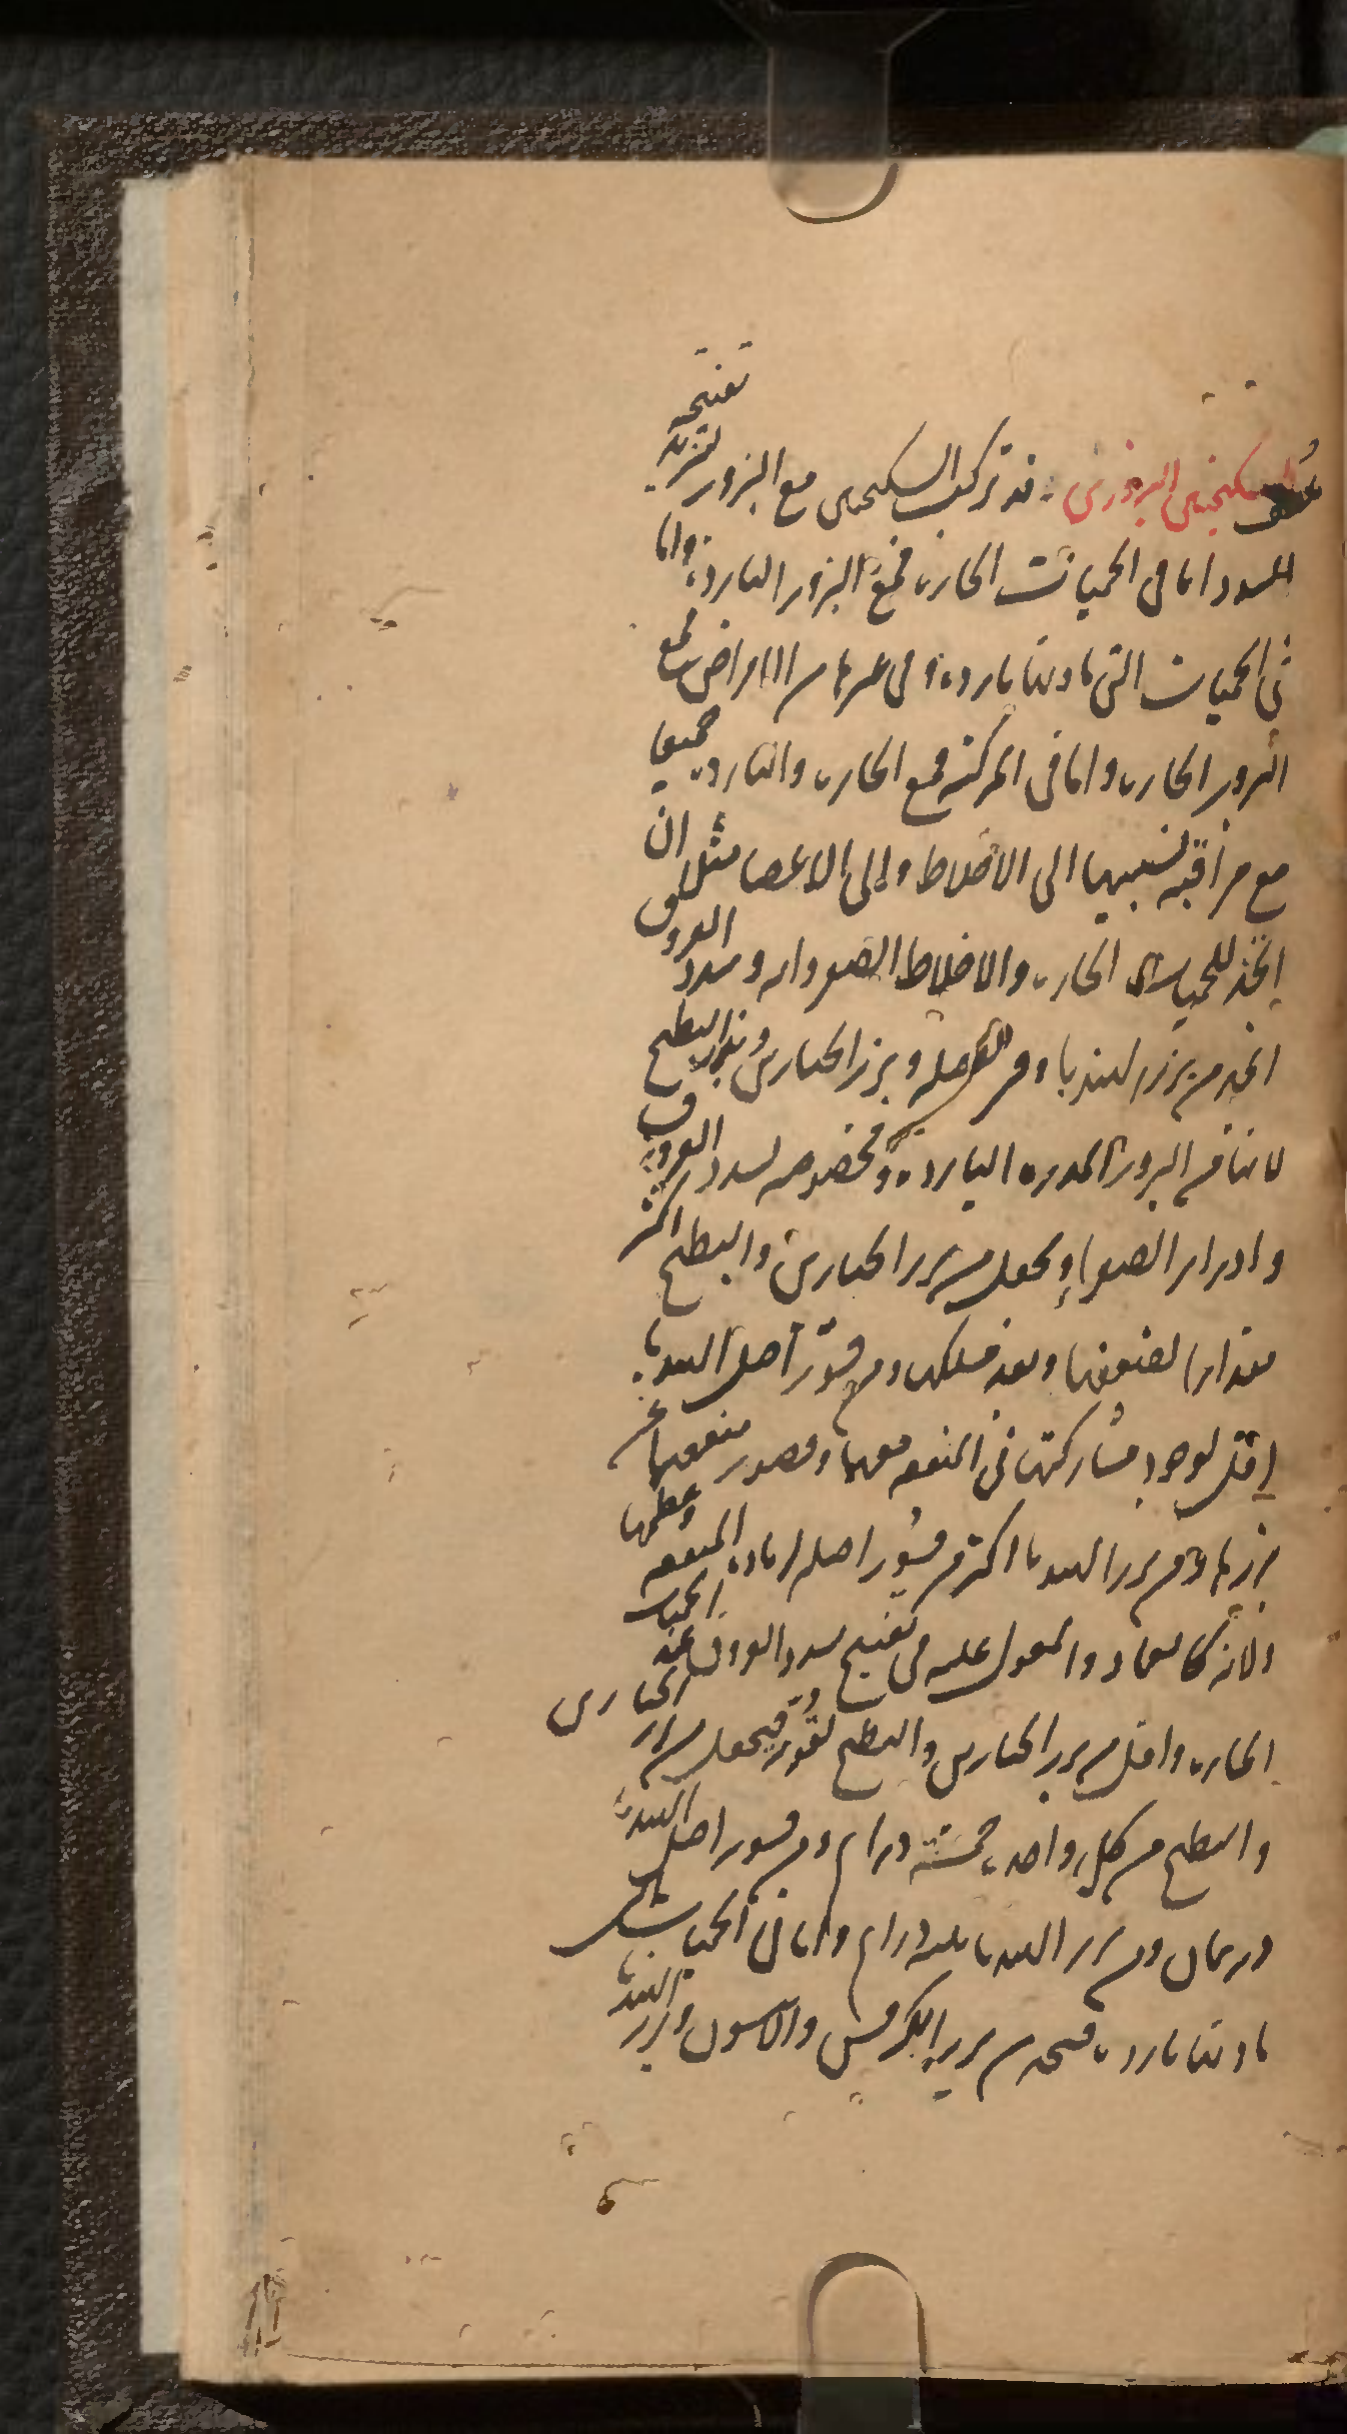 السكنجبين البزوري قد تركب السكنجبين مع البزور لتزيد تفتيحه
للسدد اما في الحميات الحارة فمع البزور الباردة واما
في الحميات التي مادتها باردة وفي غيرها من الامراض فمع
البزور الحارة واما في المركبة فمع الحارة والباردة جميعا
مع مراقبة نسبتها الى الاخلاط والى الاعضا مثلا ان
اتخذ للحميات الحارة والاخلاط الصفراوية وسدد العروق
اتخذ من بزر الهندبا وقشر اصله وبزر الخيار وبزر البطيخ
لانها من البزور المدرة الباردة ومخصوصة لسدد العروق
وادرار الصفرا ويجعل من بزر الخيارين والبطيخ اكثر
مقدارا لضعفها وبعد مسلكها ومن قشور اصل الهندبا
اقل لوجود مشاركتها في المنفعة معها وقصور منفعتها عن
بزرها ومن بزر الهندبا اكثر من قشور اصله لزيادة المنفعة وعظمها
ولانه كالعماد والمعول عليه في تفتيح سدد العروق عند الحميات
الحارة واقل من بزر الخيارين والبطيخ لقوته فيجعل من بزر الخيارين
والبطيخ من كل واحد خمسة دراهم ومن قشور اصل الهندبا
درهمان ومن بزر الهندبا ثلثه دراهم واما في الحميات التي
مادتها باردة فيتخذ من بزر الكرفس والانيسون وبزر الهندبا